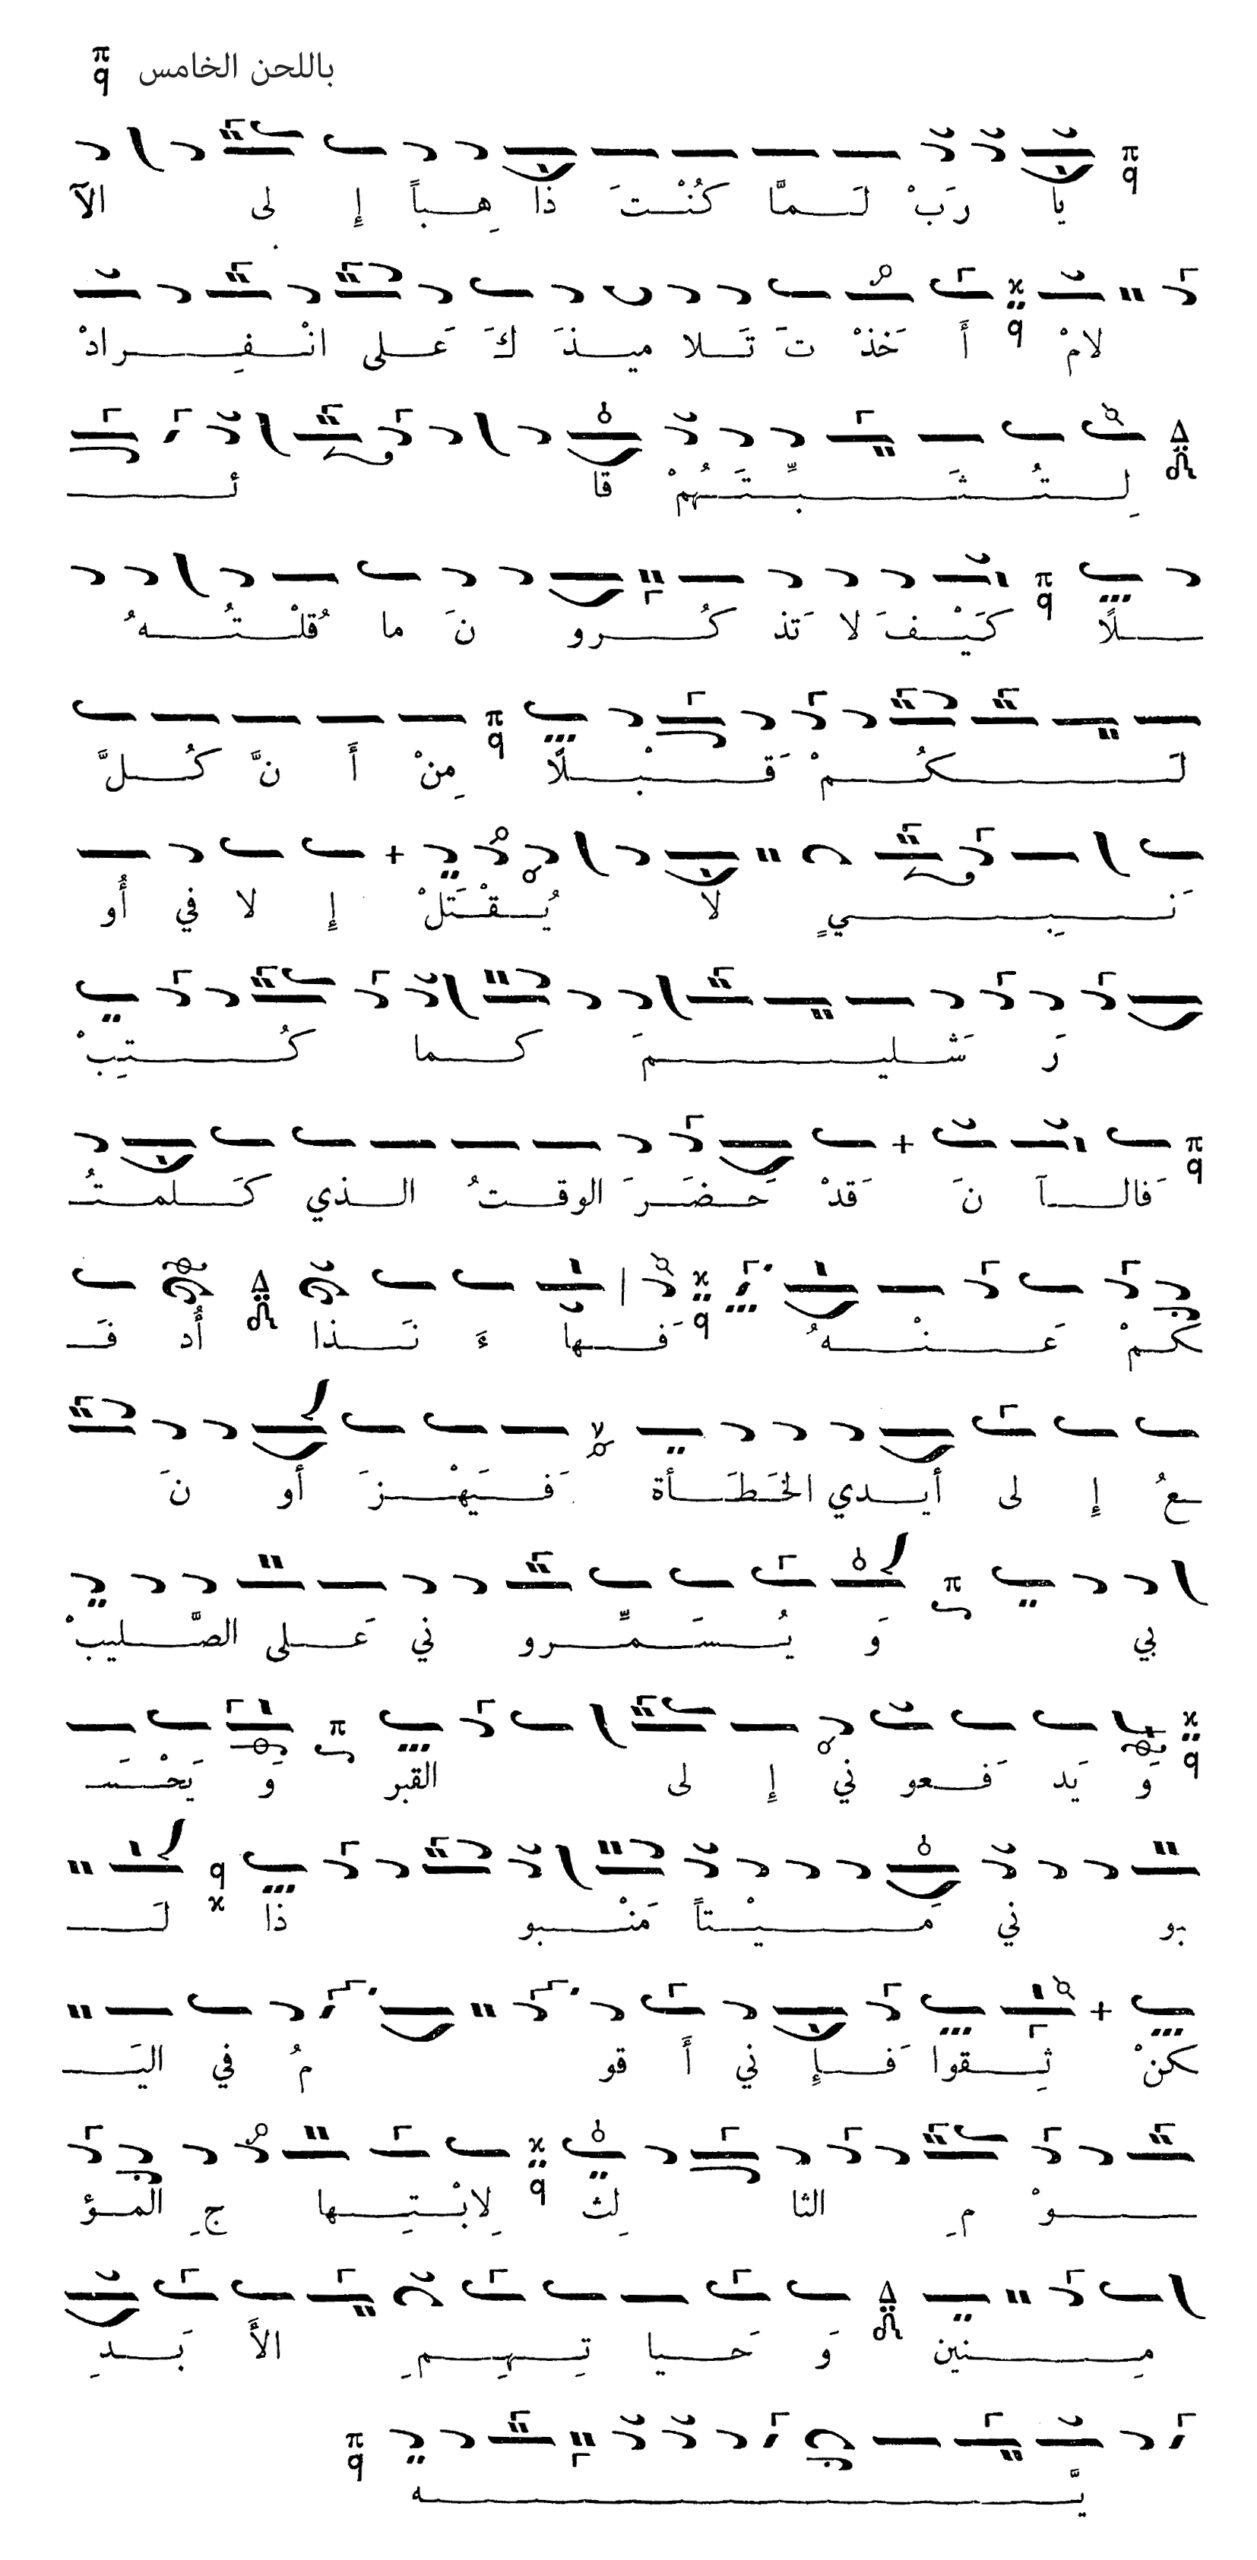 باللحن الخامس
يا رَبْ لَمَّا كُنْتَ ذا هِباً إِ لى الآ
لامْ أَ خَذْ تَ تَلا ميذَ كَ عَلى انْفِرادْ
لِتُثَبِّتَهُمْ قا ئـ
ـلًا كَيْفَ لا تَذ كُرو نَ ما قُلْتُهُ
لَكُمْ قَبْلًا مِنْ أَ نَّ كُلَّ
نَبِيٍ لا يُقْتَلْ إِ لا في أُو
رَ شَليمَ كما كُتِبْ
فَالآ نَ قَدْ حَضَرَ الوقتُ الذي كَلمتُـ
ـكمْ عَنْهُ فَها ءَ نَذا أُد فَـ
ـعُ إِ لى أيدي الخَطَأة فَيَهْزَ أو نَ
بي وَ يُسَمِّرو ني عَلى الصَّليبْ
وَ يَد فَعو ني إِ لى القبر وَ يَحْسَـ
ـبو ني مَيْتاً مَنْبو ذا لَـ
ـكنْ ثِقوا فَإِ ني أَ قو مُ في اليَـ
ـوْ مِ الثا لِث لِابْتِها جِ المؤ
مِنين وَ حَيا تِهِمِ الأَ بَدِ
يَّه